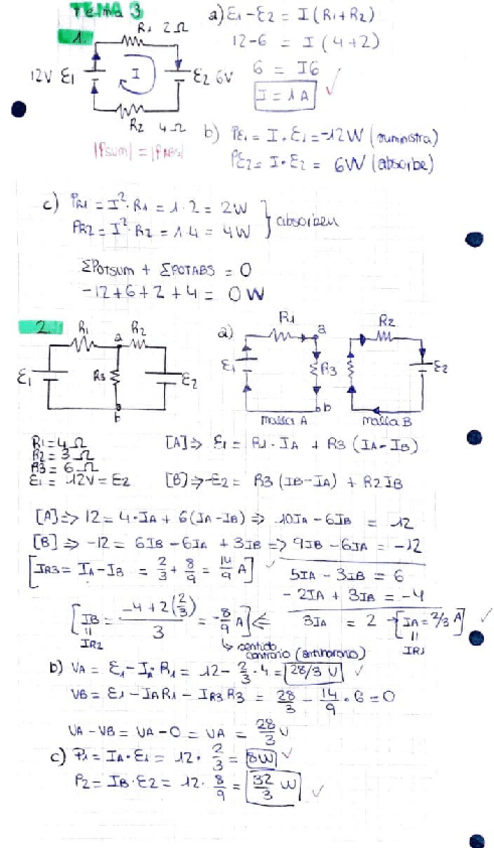 TEMA 3
1.
R1 2Ω
12V ε1
I
ε2 6V
R2 4Ω
|PSUM| = |PABS|
a) ε1 - ε2 = I (R1 + R2)
12 - 6 = I (4 + 2)
6 = I6 ✓
I = 1A
b) Pε1 = I · ε1 = -12W (suministra)
Pε2 = I · ε2 = 6W (absorbe)
c) PR1 = I² · R1 = 1 · 2 = 2W
PR2 = I² · R2 = 1 · 4 = 4W } absorben
ΣPOTSUM + ΣPOTABS = 0
-12 + 6 + 2 + 4 = 0 W
2.
R1 a R2
ε1 R3 ε2
b
a) R1 a R2
ε1 R3 ε2
b
malla A malla B
R1 = 4 Ω
R2 = 3 Ω
R3 = 6 Ω
ε1 = 12V = ε2
[A] ⇒ ε1 = R1 · IA + R3 (IA - IB)
[B] ⇒ -ε2 = R3 (IB - IA) + R2 IB
[A] ⇒ 12 = 4 · IA + 6 (IA - IB) ⇒ 10IA - 6IB = 12
[B] ⇒ -12 = 6IB - 6IA + 3IB ⇒ 9IB - 6IA = -12
[IR3 = IA - IB = 2/3 + 8/9 = 14/9 A]
5IA - 3IB = 6
- 2IA + 3IB = -4
3IA = 2 → [IA = 2/3 A] ✓
IR1
[IB = (-4 + 2(2/3))/3 = -8/9 A] ⇐
IR2
↳ sentido contrario (antihorario)
b) VA = ε1 - IA · R1 = 12 - 2/3 · 4 = 28/3 V ✓
VB = ε1 - IA R1 - IR3 R3 = 28/3 - 14/9 · 6 = 0
VA - VB = VA - 0 = VA = 28/3 V
c) P1 = IA · ε1 = 12 · 2/3 = 8W ✓
P2 = IB · ε2 = 12 · 8/9 = 32/3 W ✓